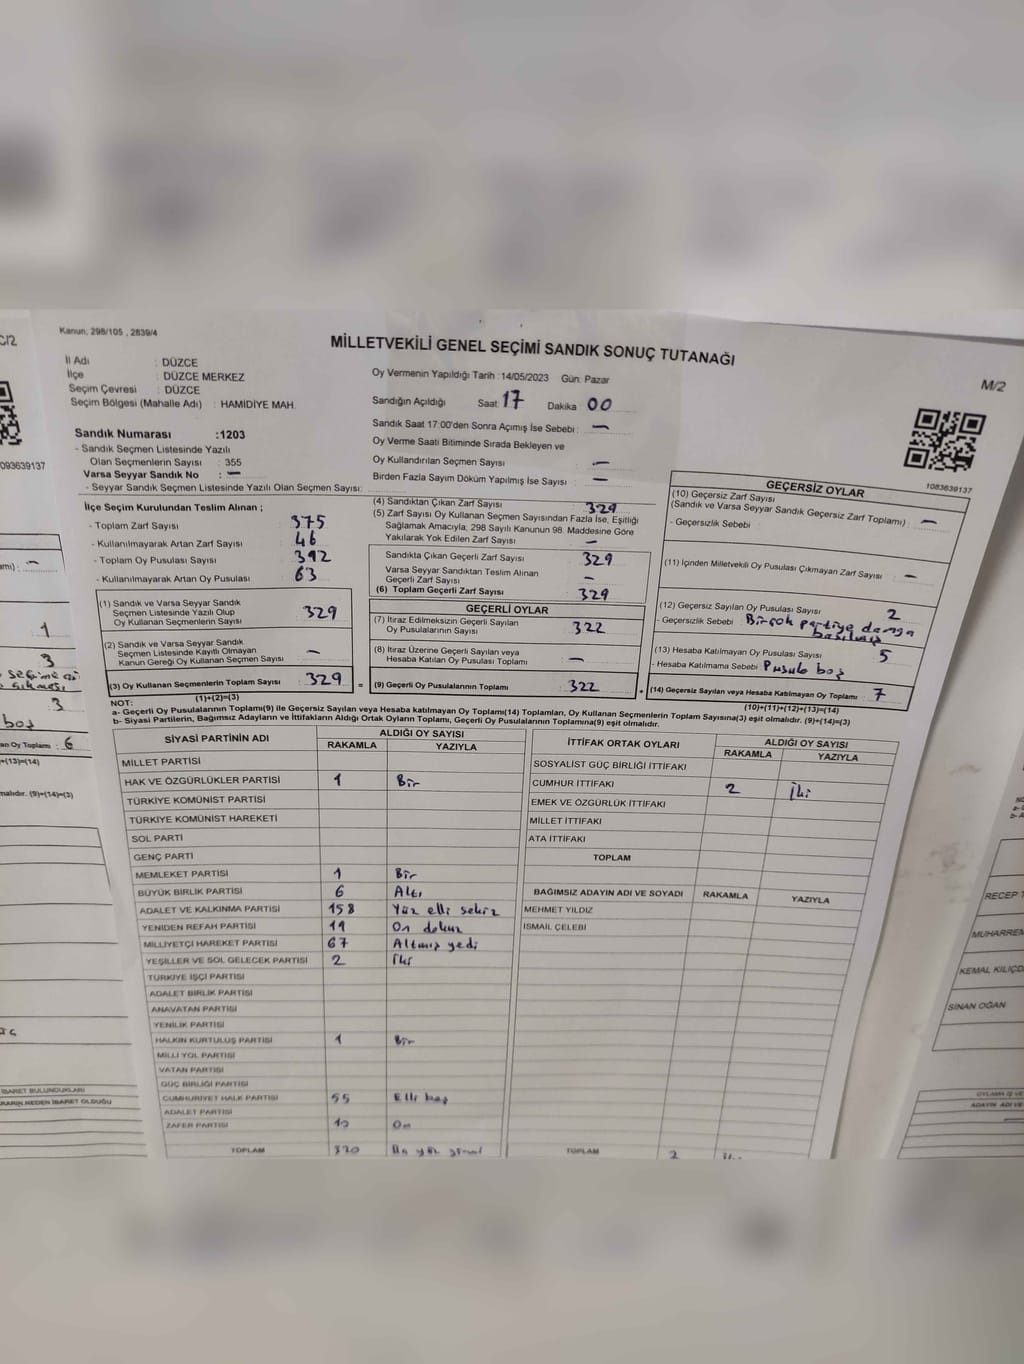 C/2
093639137
Kanun; 298/105 , 2839/4
MİLLETVEKİLİ GENEL SEÇİMİ SANDIK SONUÇ TUTANAĞI
M/2
İl Adı : DÜZCE
İlçe : DÜZCE MERKEZ
Seçim Çevresi : DÜZCE
Seçim Bölgesi (Mahalle Adı) : HAMİDİYE MAH.
Oy Vermenin Yapıldığı Tarih : 14/05/2023 Gün: Pazar
Sandığın Açıldığı Saat: 17 Dakika : 00
Sandık Saat 17:00'den Sonra Açımış İse Sebebi : —
Oy Verme Saati Bitiminde Sırada Bekleyen ve
Oy Kullandırılan Seçmen Sayısı : —
Birden Fazla Sayım Döküm Yapılmış İse Sayısı : —
Sandık Numarası :1203
- Sandık Seçmen Listesinde Yazılı
Olan Seçmenlerin Sayısı : 355
Varsa Seyyar Sandık No : —
- Seyyar Sandık Seçmen Listesinde Yazılı Olan Seçmen Sayısı:
1083639137
İlçe Seçim Kurulundan Teslim Alınan ;
- Toplam Zarf Sayısı : 375
- Kullanılmayarak Artan Zarf Sayısı : 46
- Toplam Oy Pusulası Sayısı : 392
- Kullanılmayarak Artan Oy Pusulası : 63
(1) Sandık ve Varsa Seyyar Sandık
Seçmen Listesinde Yazılı Olup
Oy Kullanan Seçmenlerin Sayısı : 329
(2) Sandık ve Varsa Seyyar Sandık
Seçmen Listesinde Kayıtlı Olmayan
Kanun Gereği Oy Kullanan Seçmen Sayısı : —
(3) Oy Kullanan Seçmenlerin Toplam Sayısı : 329
(1)+(2)=(3)
(4) Sandıktan Çıkan Zarf Sayısı : 329
(5) Zarf Sayısı Oy Kullanan Seçmen Sayısından Fazla İse, Eşitliği
Sağlamak Amacıyla, 298 Sayılı Kanunun 98. Maddesine Göre
Yakılarak Yok Edilen Zarf Sayısı : —
Sandıkta Çıkan Geçerli Zarf Sayısı : 329
Varsa Seyyar Sandıktan Teslim Alınan
Geçerli Zarf Sayısı : —
(6) Toplam Geçerli Zarf Sayısı : 329
GEÇERLİ OYLAR
(7) İtiraz Edilmeksizin Geçerli Sayılan
Oy Pusulalarının Sayısı : 322
(8) İtiraz Üzerine Geçerli Sayılan veya
Hesaba Katılan Oy Pusulası Toplamı : —
= (9) Geçerli Oy Pusulalarının Toplamı : 322
GEÇERSİZ OYLAR
(10) Geçersiz Zarf Sayısı
(Sandık ve Varsa Seyyar Sandık Geçersiz Zarf Toplamı) : —
- Geçersizlik Sebebi :
(11) İçinden Milletvekili Oy Pusulası Çıkmayan Zarf Sayısı : —
(12) Geçersiz Sayılan Oy Pusulası Sayısı : 2
- Geçersizlik Sebebi : Birçok partiye damga
basılmış
(13) Hesaba Katılmayan Oy Pusulası Sayısı : 5
- Hesaba Katılmama Sebebi : Pusula boş
+ (14) Geçersiz Sayılan veya Hesaba Katılmayan Oy Toplamı : 7
(10)+(11)+(12)+(13)=(14)
NOT:
a- Geçerli Oy Pusulalarının Toplamı(9) ile Geçersiz Sayılan veya Hesaba katılmayan Oy Toplamı(14) Toplamları, Oy Kullanan Seçmenlerin Toplam Sayısına(3) eşit olmalıdır. (9)+(14)=(3)
b- Siyasi Partilerin, Bağımsız Adayların ve İttifakların Aldığı Ortak Oyların Toplamı, Geçerli Oy Pusulalarının Toplamına(9) eşit olmalıdır.
SİYASİ PARTİNİN ADI ALDIĞI OY SAYISI
RAKAMLA YAZIYLA
MİLLET PARTİSİ
HAK VE ÖZGÜRLÜKLER PARTİSİ 1 Bir
TÜRKİYE KOMÜNİST PARTİSİ
TÜRKİYE KOMÜNİST HAREKETİ
SOL PARTİ
GENÇ PARTİ
MEMLEKET PARTİSİ 1 Bir
BÜYÜK BİRLİK PARTİSİ 6 Altı
ADALET VE KALKINMA PARTİSİ 158 Yüz elli sekiz
YENİDEN REFAH PARTİSİ 19 On dokuz
MİLLİYETÇİ HAREKET PARTİSİ 67 Altmış yedi
YEŞİLLER VE SOL GELECEK PARTİSİ 2 İki
TÜRKİYE İŞÇİ PARTİSİ
ADALET BİRLİK PARTİSİ
ANAVATAN PARTİSİ
YENİLİK PARTİSİ
HALKIN KURTULUŞ PARTİSİ 1 Bir
MİLLİ YOL PARTİSİ
VATAN PARTİSİ
GÜÇ BİRLİĞİ PARTİSİ
CUMHURİYET HALK PARTİSİ 55 Elli beş
ADALET PARTİSİ
ZAFER PARTİSİ 10 On
TOPLAM 320 Üç yüz yirmi
İTTİFAK ORTAK OYLARI ALDIĞI OY SAYISI
RAKAMLA YAZIYLA
SOSYALİST GÜÇ BİRLİĞİ İTTİFAKI
CUMHUR İTTİFAKI 2 İki
EMEK VE ÖZGÜRLÜK İTTİFAKI
MİLLET İTTİFAKI
ATA İTTİFAKI
TOPLAM
BAĞIMSIZ ADAYIN ADI VE SOYADI RAKAMLA YAZIYLA
MEHMET YILDIZ
İSMAİL ÇELEBİ
TOPLAM 2 İki
1
3
3
boş
an Oy Toplamı : 6
+(13)=(14)
malıdır. (9)+(14)=(3)
İBARET BULUNDUKLARI
RARIN NEDEN İBARET OLDUĞU
RECEP T
MUHARREM
KEMAL KILIÇD
SİNAN OĞAN
OYLAMA İŞ VE
ADAYIN ADI VE